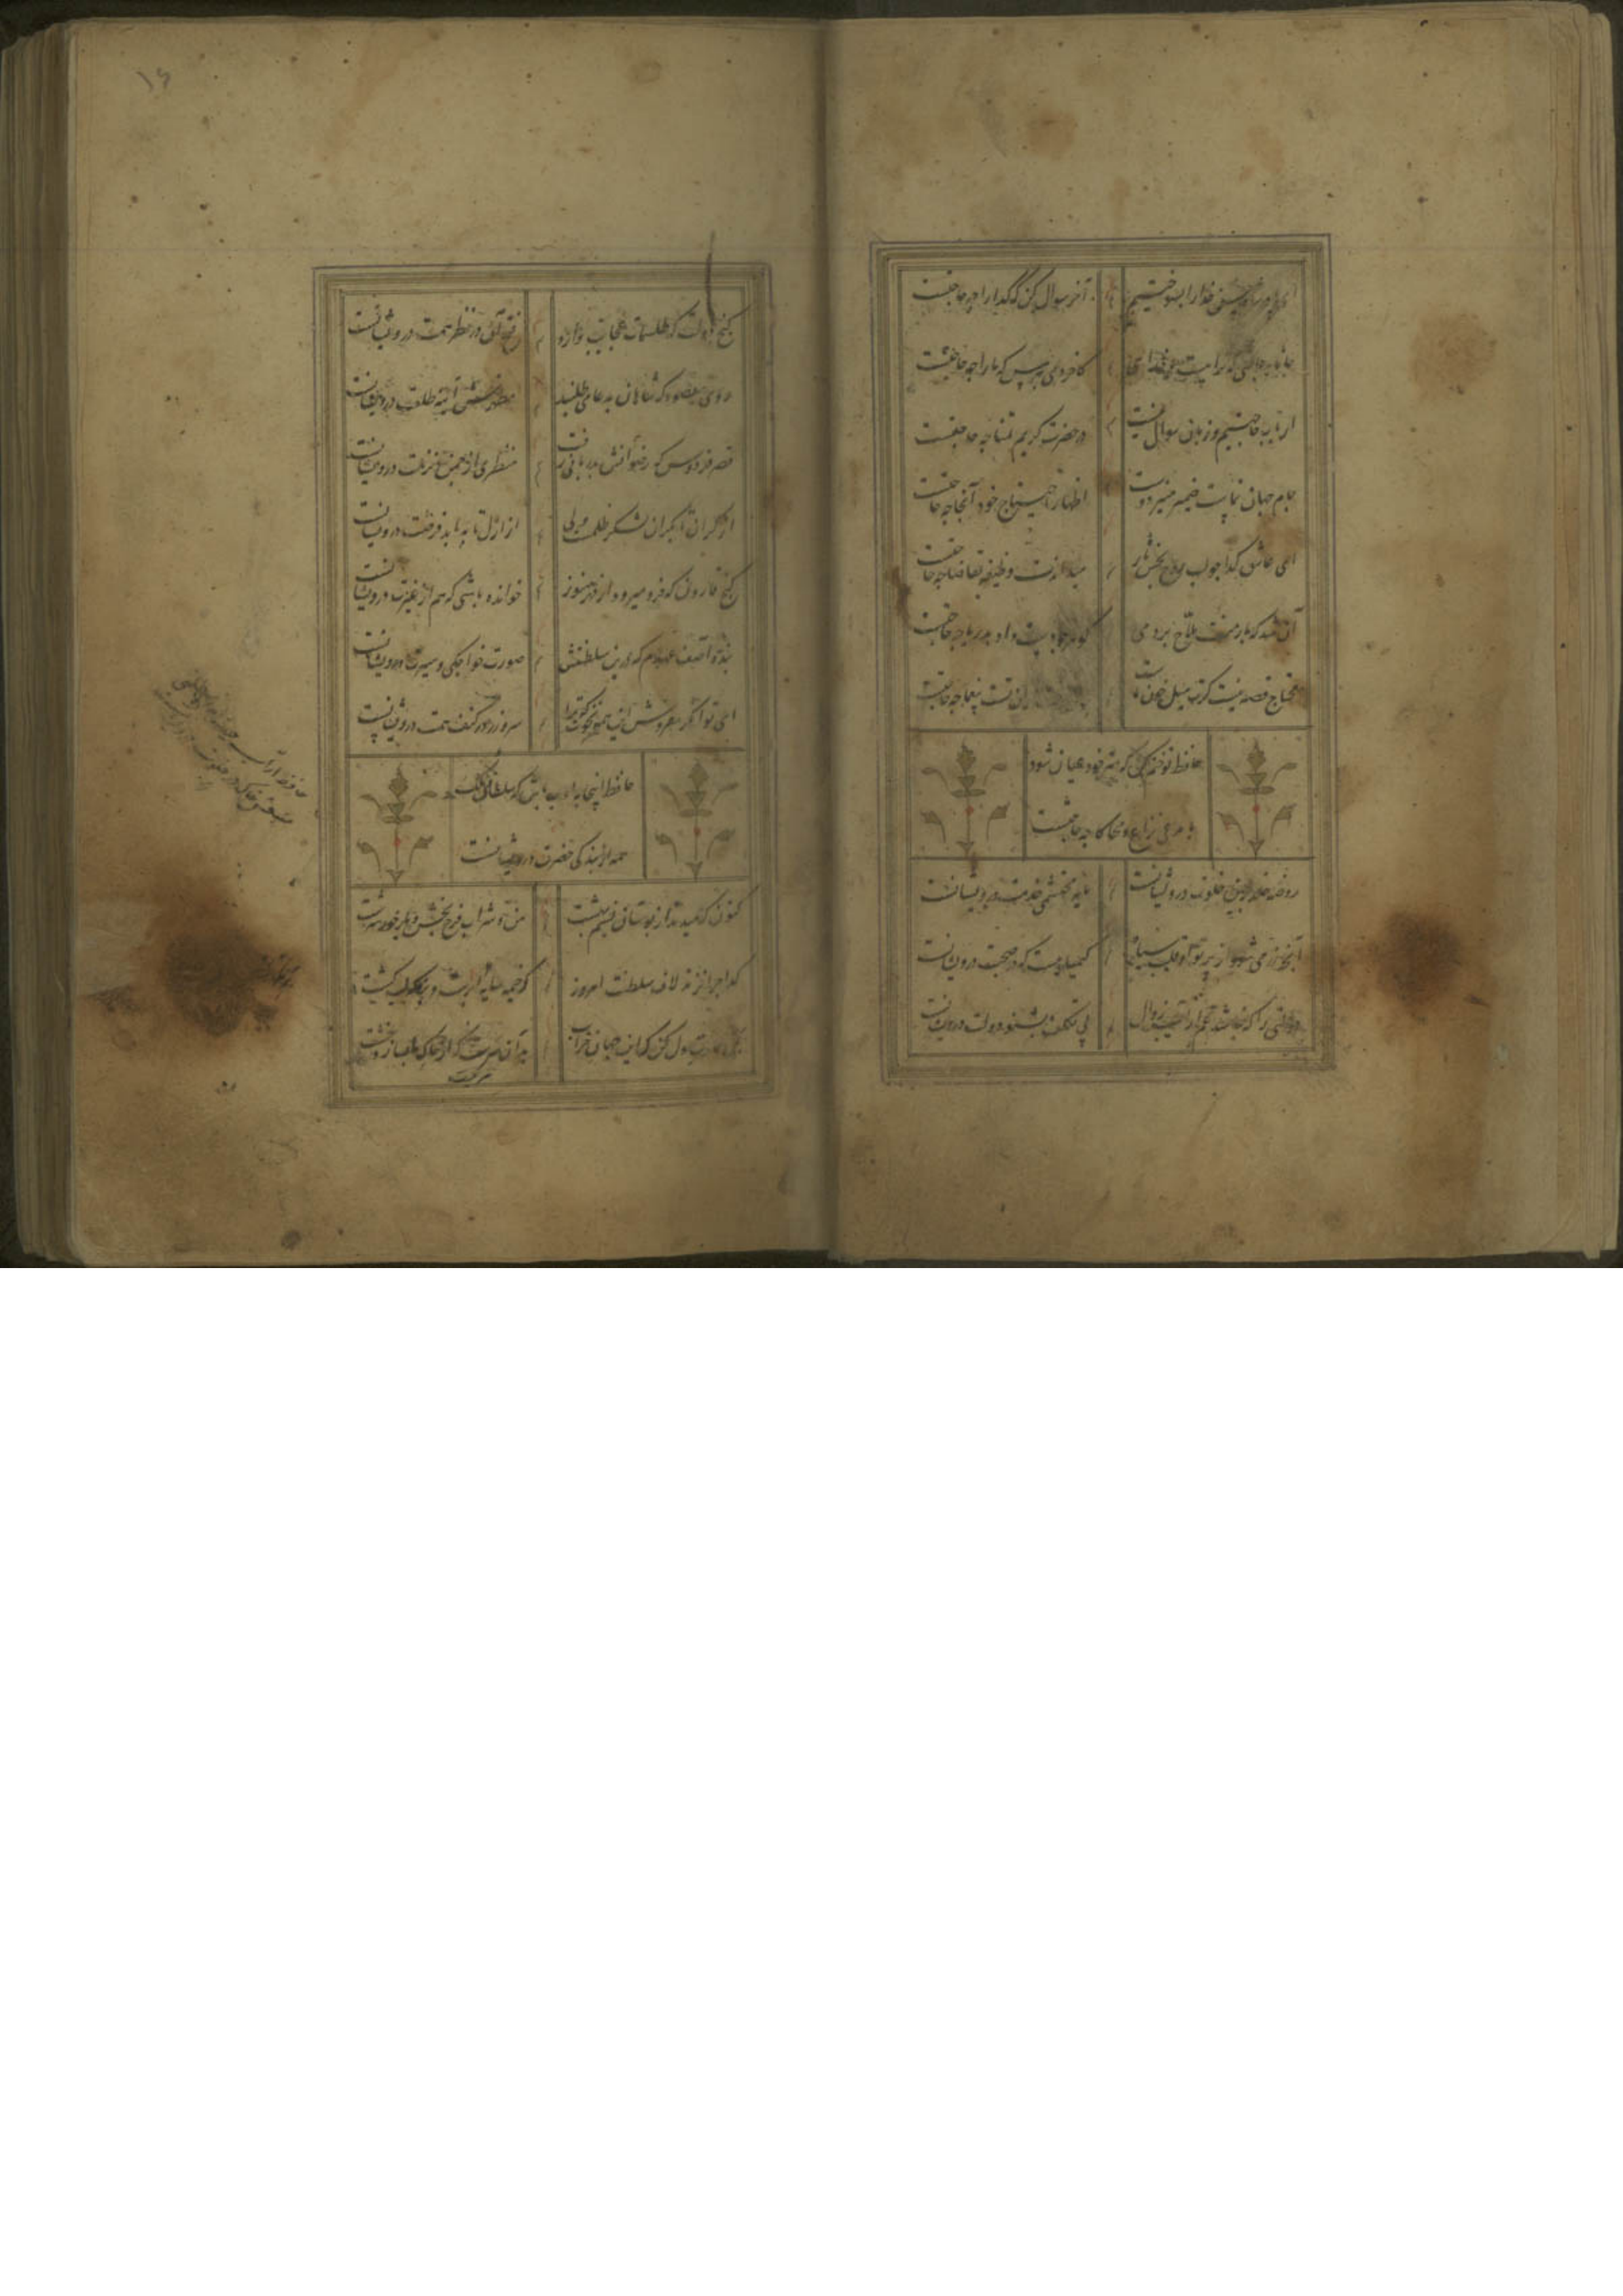 ای پادشاه حسن خدا را بسوختیم آخر سوال کن که گدا را چه حاجتست
جانا به حاجتی که ترا هست با خدای کاخر دمی بپرس که ما را چه حاجتست
ارباب حاجتیم و زبان سوال نیست در حضرت کریم تمنا چه حاجتست
جام جهان نماست ضمیر منیر دوست اظهار احتیاج خود آنجا چه حاجتست
ای عاشق گدا چو لب روح بخش یار میداندت وظیفه تقاضا چه حاجتست
آن شد که بار منت ملاح بردمی گوهر چو دست داد بدریا چه حاجتست
محتاج قصه نیست گرت میل خون ماست ان تست یغما چه حاجتست
حافظ تو ختم کن که هنر خود عیان شود
با مدعی نزاع و محاکا چه حاجتست
روضه خلد برین خلوت درویشانست مایه محتشمی خدمت درویشانست
آنچه زر می شود از پرتو آن قلب سیاه کیمیاییست که در صحبت درویشانست
دولتی را که نباشد غم از آسیب زوال بی تکلف بشنو دولت درویشانست
۱۶
گنج عزلت که طلسمات عجایب دارد فتح آن در نظر همت درویشانست
روی مقصود که شاهان به دعا می طلبند مظهرش آینه طلعت درویشانست
قصر فردوس که رضوانش بدربانی رفت منظری از چمن نزهت درویشانست
از کران تا بکران لشکر ظلمست ولی از ازل تا به ابد فرصت درویشانست
گنج قارون که فرو میرود از قهر هنوز خوانده باشی که هم از غیرت درویشانست
بنده آصف عهدم که درین سلطنتش صورت خواجگی و سیرت درویشانست
ای توانگر مفروش این همه نخوت که ترا سر و زر در کنف همت درویشانست
حافظ اینجا به ادب باش که سلطانی و ملک
همه از بندگی حضرت درویشانست
کنون که میدمد از بوستان نسیم بهشت من و شراب فرح بخش و یار حور سرشت
گدا چرا نزند لاف سلطنت امروز که خیمه سایه ابرست و بزمگه لب کشت
عمارت دل کن که این جهان خراب بر آن سرست که از خاک ما بسازد خشت